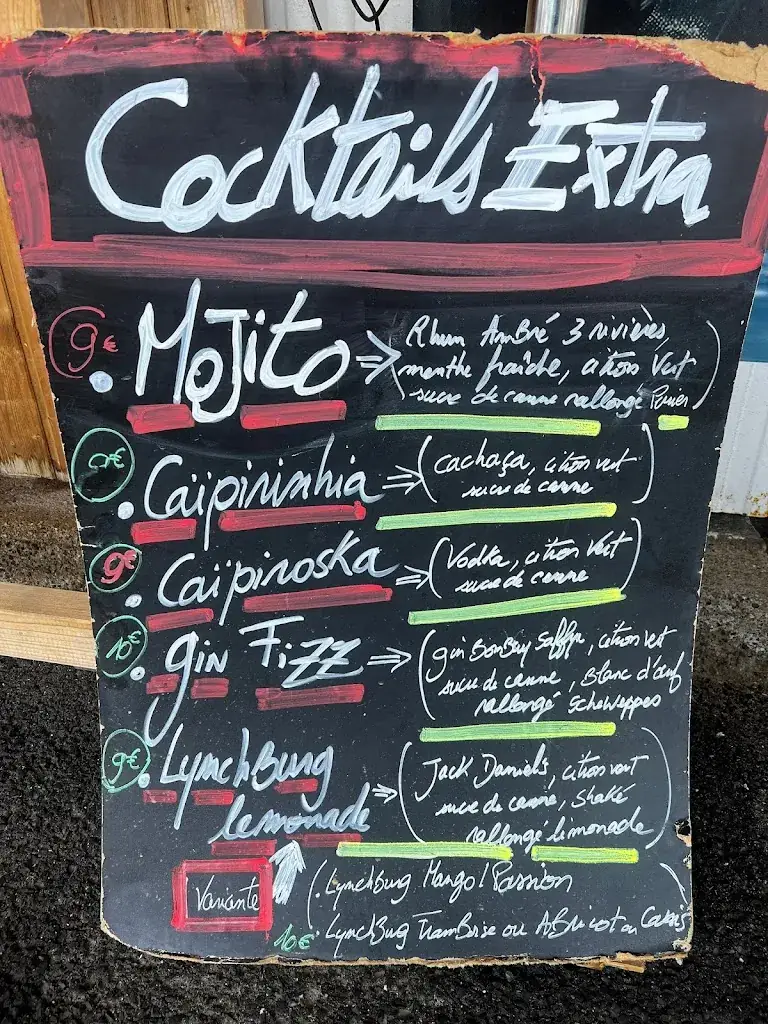 Cocktails Extra
9€ . Mojito => (Rhum Ambré 3 rivières,
menthe fraîche, citron vert
sucre de canne rallongé Perrier)
. Caïpirinhia => (cachaça, citron vert
sucre de canne)
9€ . Caïpiroska => (Vodka, citron vert
sucre de canne)
10€ . gin Fizz => (gin Bombay Saffir, citron vert
sucre de canne, Blanc d'œuf
rallongé Schweppes)
9€ . LynchBurg
lemonade => (Jack Daniel's, citron vert
sucre de canne, Shaké
rallongé limonade)
Variante (. Lynchburg Mango / Passion
10€ . LynchBurg FramBoise ou ABricot ou Cassis)